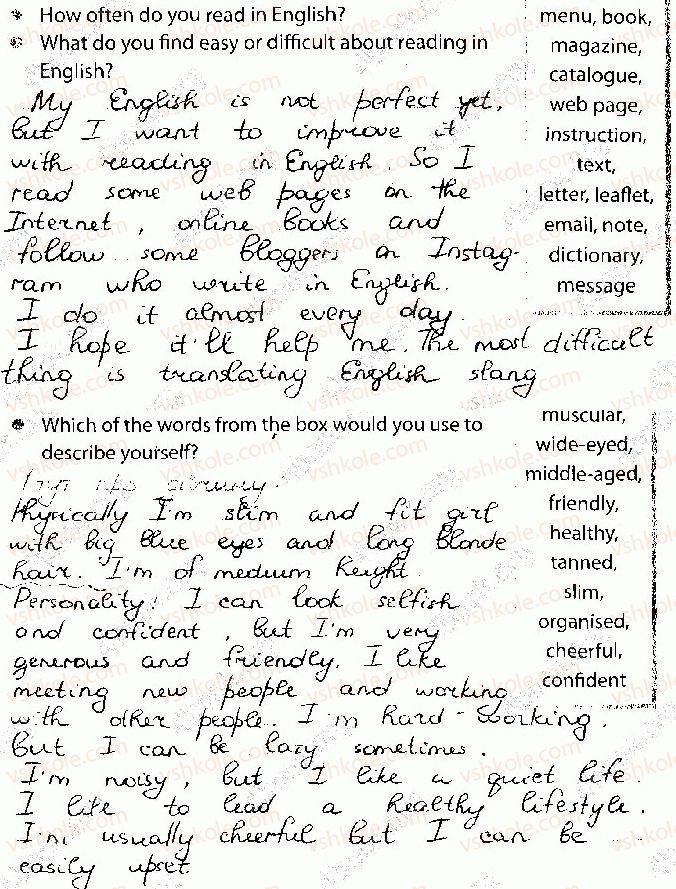 How often do you read in English?
What do you find easy or difficult about reading in
English?
My English is not perfect yet,
but I want to improve it
with reading in English. So I
read some web pages on the
Internet, online books and
follow some bloggers on Instag-
ram who write in English.
I do it almost every day.
I hope it'll help me. The most difficult
thing is translating English slang
menu, book,
magazine,
catalogue,
web page,
instruction,
text,
letter, leaflet,
email, note,
dictionary,
message
Which of the words from the box would you use to
describe yourself?
Physically I'm slim and fit girl
with big blue eyes and long blonde
hair. I'm of medium height
Personality: I can look selfish
and confident, but I'm very
generous and friendly. I like
meeting new people and working
with other people. I'm hard-working,
but I can be lazy sometimes.
I'm noisy, but I like a quiet life.
I like to lead a healthy lifestyle.
I'm usually cheerful but I can be
easily upset
muscular,
wide-eyed,
middle-aged,
friendly,
healthy,
tanned,
slim,
organised,
cheerful,
confident